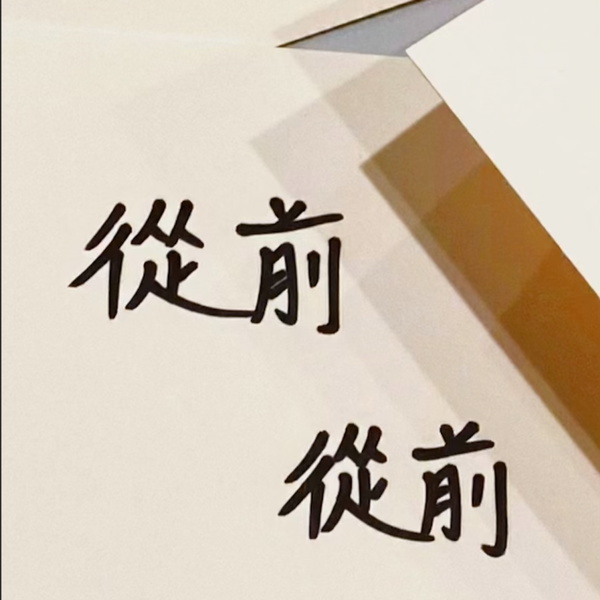 從前
從前